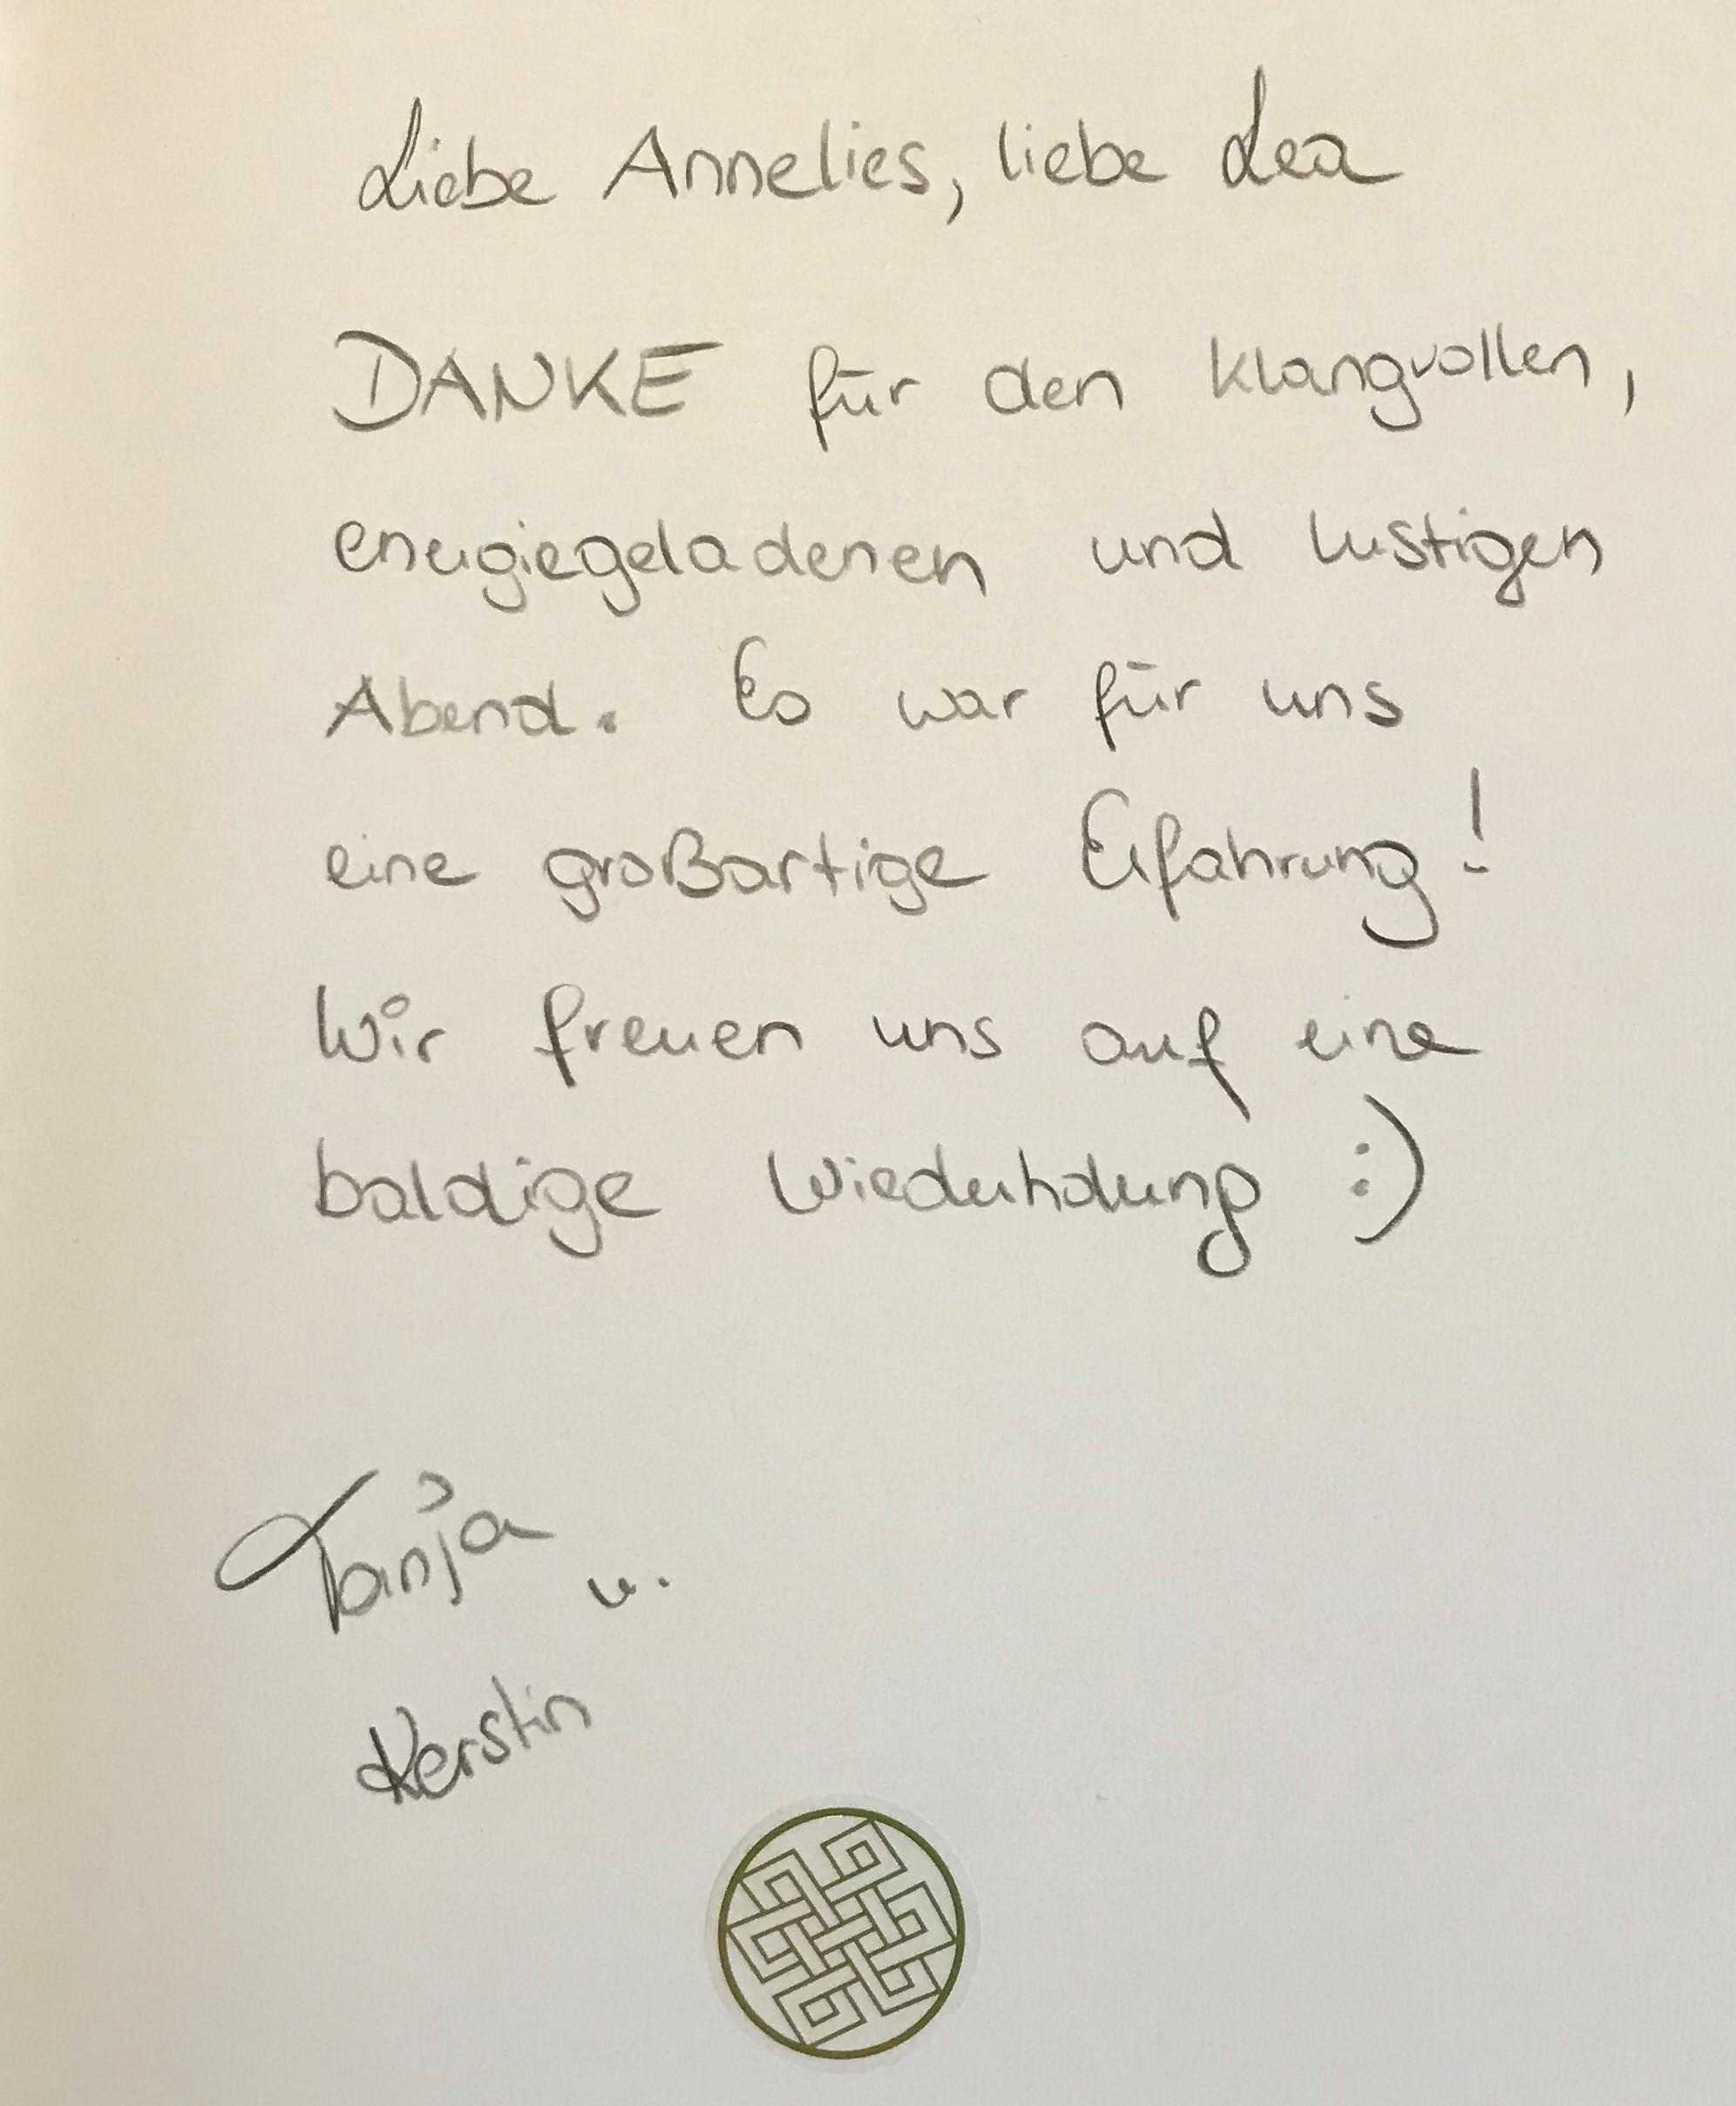 Liebe Annelies, liebe Lea
DANKE für den klangvollen,
energiegeladenen und lustigen
Abend. Es war für uns
eine großartige Erfahrung!
Wir freuen uns auf eine
baldige Wiederholung :)
Tanja u.
Kerstin